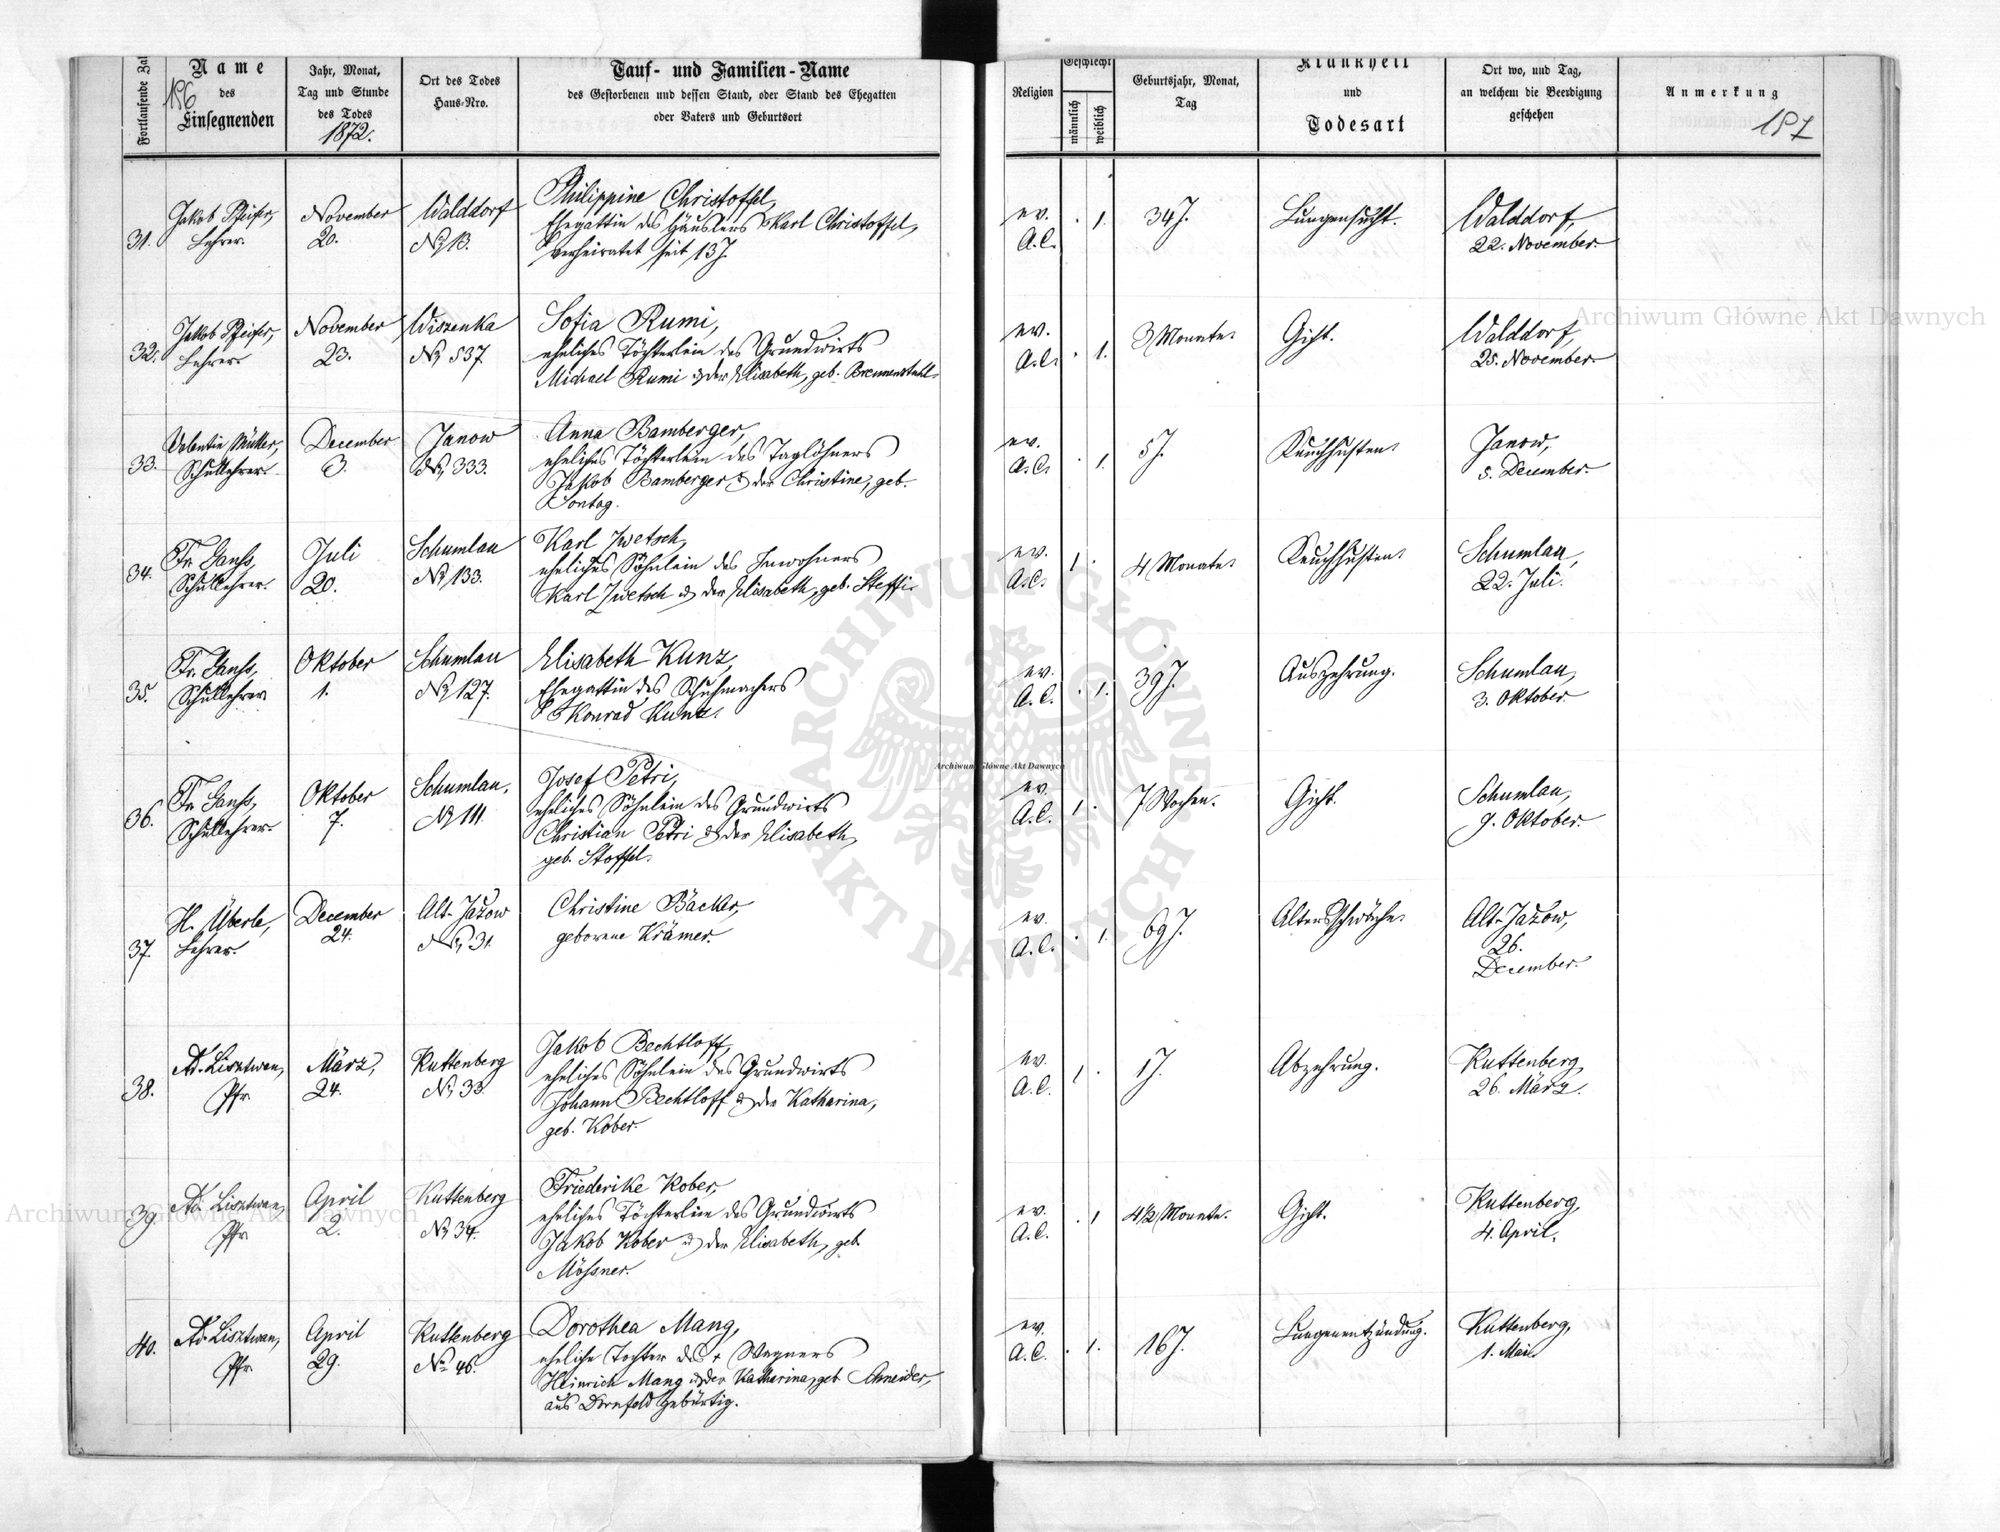 186
Fortlaufende Zal
Name
des
Einsegnenden
Jahr, Monat,
Tag und Stunde
des Todes
1872.
Ort des Todes
Haus-Nro.
Tauf- und Familien-Name
des Gestorbenen und dessen Stand, oder Stand des Ehegatten
oder Vaters und Geburtsort
Religion
Geschlecht
männlich
weiblich
Geburtsjahr, Monat,
Tag
Krankheit
und
Todesart
Ort wo, und Tag,
an welchem die Beerdigung
geschehen
Anmerkung
187
31.
Jakob Pfeifer,
Lehrer.
November
20.
Walddorf
No 13.
Philippine Christoffel,
Ehegattin des Häuslers Karl Christoffel,
verheiratet seit 13 J.
ev.
A.C.
. 1.
34 J.
Lungensucht.
Walddorf,
22. November.
32.
Jakob Pfeifer,
Lehrer.
November
23.
Wiszenka
No 537.
Sofia Rumi,
eheliches Töchterlein des Grundwirts
Michael Rumi u. der Elisabeth, geb. Brennenstuhl.
ev.
A.C.
. 1.
3 Monate.
Gicht.
Walddorf,
25. November.
33.
Valentin Müller,
Schullehrer.
December
3.
Janow
No 333.
Anna Bamberger,
eheliches Töchterlein des Taglöhners
Jakob Bamberger u. der Christine, geb.
Sontag.
ev.
A.C.
. 1.
5 J.
Keuchhusten.
Janow,
5. December.
34.
Fr. Ganß,
Schullehrer.
Juli
20.
Schumlau
No 133.
Karl Zwetsch,
eheliches Söhnlein des Inwohners
Karl Zwetsch u. der Elisabeth, geb. Steffi.
ev.
A.C.
1 .
4 Monate.
Keuchhusten.
Schumlau,
22. Juli.
35.
Fr. Ganß,
Schullehrer
Oktober
1.
Schumlau
No 127.
Elisabeth Kunz,
Ehegattin des Schuhmachers
Konrad Kunz.
ev.
A.C.
. 1.
39 J.
Auszehrung.
Schumlau,
3. Oktober.
36.
Fr. Ganß,
Schullehrer.
Oktober
7.
Schumlau,
No 111.
Josef Petri,
eheliches Söhnlein des Grundwirts
Christian Petri u. der Elisabeth,
geb. Stoffel.
ev.
A.C.
1 .
7 Wochen.
Gicht.
Schumlau,
9. Oktober.
37.
H. Überle,
Lehrer.
December
24.
Alt-Jażow
No 31.
Christine Bäcker,
geborene Krämer.
ev.
A.C.
. 1.
69 J.
Altersschwäche.
Alt-Jażow,
26.
December.
38.
Ad. Lisztwan,
Pfr.
März,
24.
Kuttenberg
No 33.
Jakob Bechtloff,
eheliches Söhnlein des Grundwirts
Johann Bechtloff u. der Katharina,
geb. Kober.
ev.
A.C.
1 .
1 J.
Abzehrung.
Kuttenberg,
26. März.
39.
Ad. Lisztwan,
Pfr.
April
2.
Kuttenberg
No 34.
Friederike Kober,
eheliches Töchterlein des Grundwirts
Jakob Kober u. der Elisabeth, geb.
Mössner.
ev.
A.C.
. 1
4 1/2 Monate.
Gicht.
Kuttenberg,
4. April.
40.
Ad. Lisztwan,
Pfr.
April
29.
Kuttenberg
No 46.
Dorothea Mang,
eheliche Tochter des + Wagners
Heinrich Mang u. der Katharina, geb. Schneider,
aus Dornfeld gebürtig.
ev.
A.C.
. 1.
16 J.
Lungenentzündung.
Kuttenberg,
1. Mai.
Archiwum Główne Akt Dawnych
Archiwum Główne Akt Dawnych
Archiwum Główne Akt Dawnych
ARCHIWUM GŁÓWNE AKT DAWNYCH